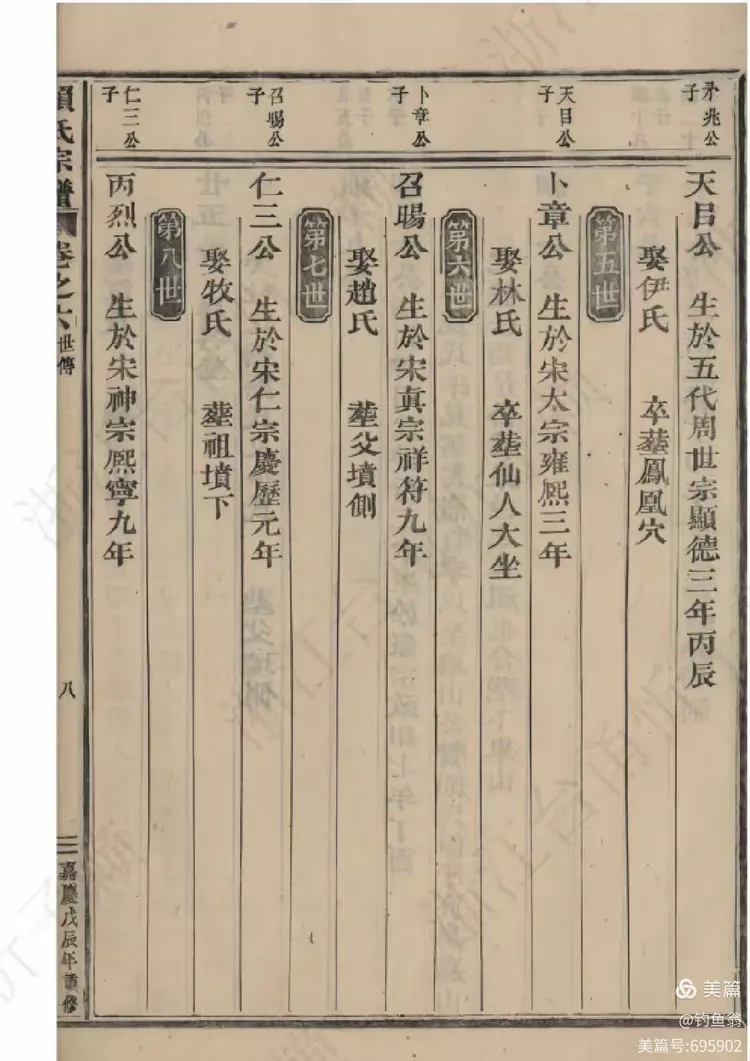 禾兆公
子
天目公 生於五代周世宗顯德三年丙辰
娶伊氏 卒塟鳳凰穴
第五世
天目公
子
卜章公 生於宋太宗雍熙三年
娶林氏 卒塟仙人大坐
第六世
卜章公
子
召暘公 生於宋真宗祥符九年
娶趙氏 塟父墳側
第七世
召暘公
子
仁三公 生於宋仁宗慶歷元年
娶牧氏 塟祖墳下
第八世
仁三公
子
丙烈公 生於宋神宗熈寧九年
氏宗譜 卷之六 世傳
八
嘉慶戊辰年重修
美篇
@钓鱼翁
美篇号:695902